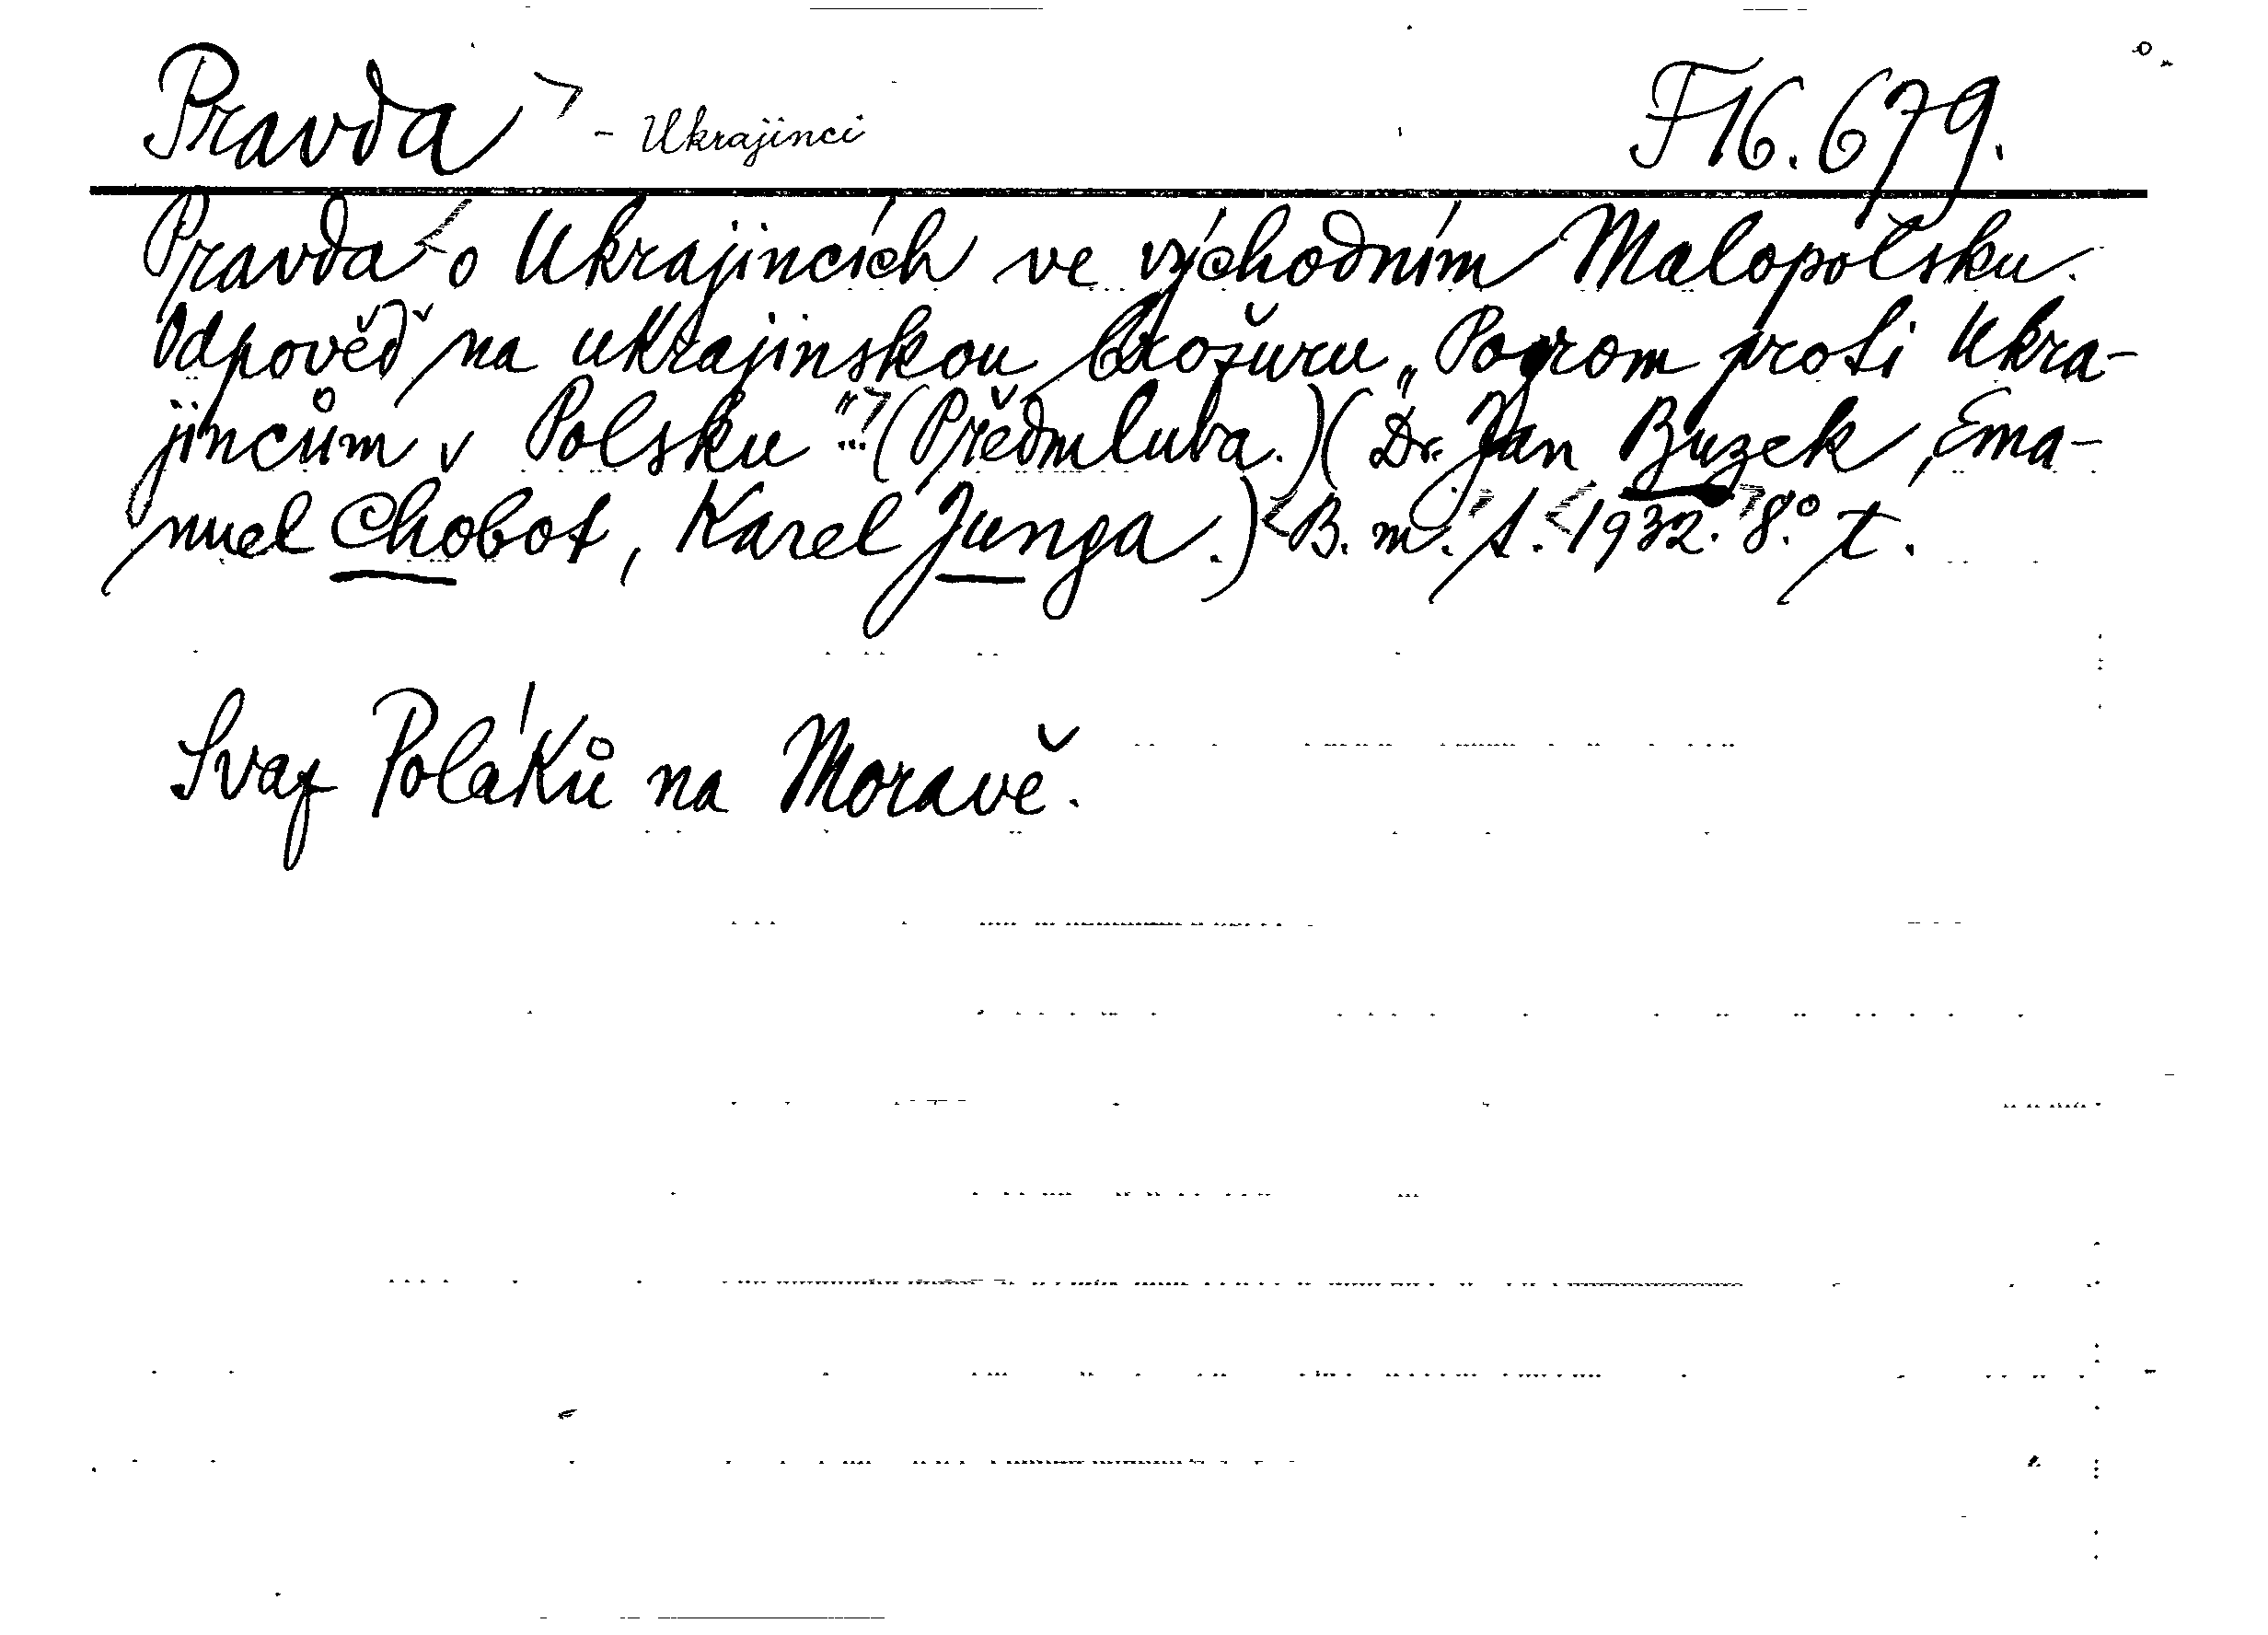 Pravda - Ukrajinci F 16.679.
Pravda o Ukrajincích ve východním Malopolsku.
Odpověď na ukrajinskou brožuru „Pogrom proti Ukra-
jincům v Polsku“. (Předmluva.) (Dr. Jan Buzek, Ema-
nuel Chobot, Karel Junga.) B. m. t. 1932. 8° t.
Svaz Poláků na Moravě.